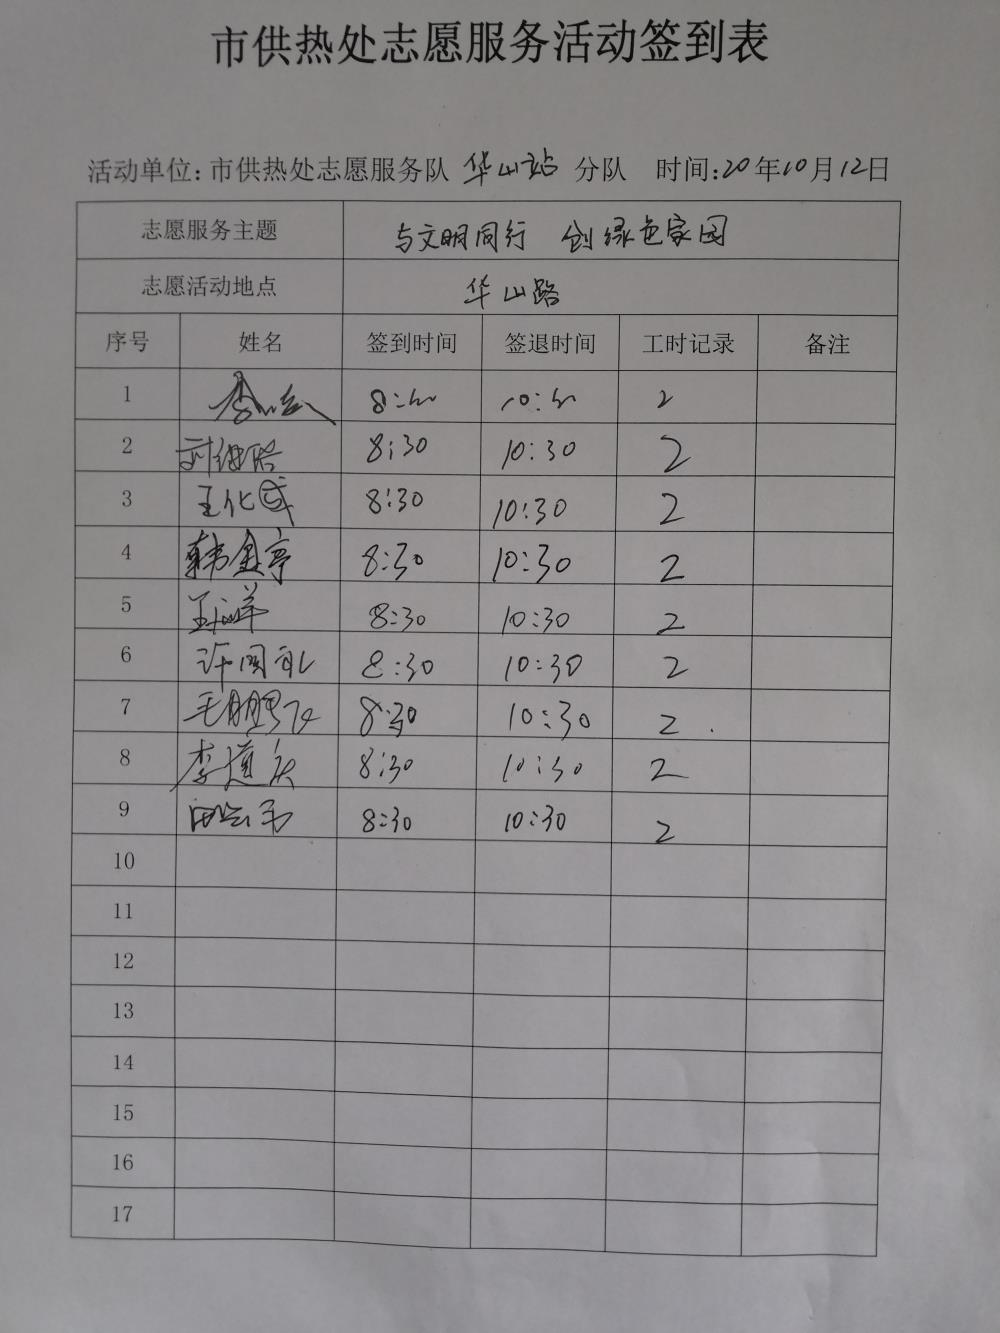 市供热处志愿服务活动签到表
活动单位:市供热处志愿服务队 华山站 分队 时间:20年10月12日
志愿服务主题 与文明同行 创绿色家园
志愿活动地点 华山路
序号 姓名 签到时间 签退时间 工时记录 备注
1 李 8:30 10:30 2
2 刘 8:30 10:30 2
3 王化成 8:30 10:30 2
4 韩金亭 8:30 10:30 2
5 王 8:30 10:30 2
6 许国礼 8:30 10:30 2
7 毛 8:30 10:30 2
8 李道庆 8:30 10:30 2
9 8:30 10:30 2
10
11
12
13
14
15
16
17